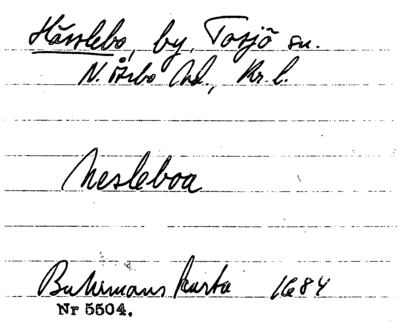 Hässlebo, by, Tosjö sn.
N. Åsbo hd., Kr. l.
Hesleboa
Buhrmans karta 1684
Nr 5504.